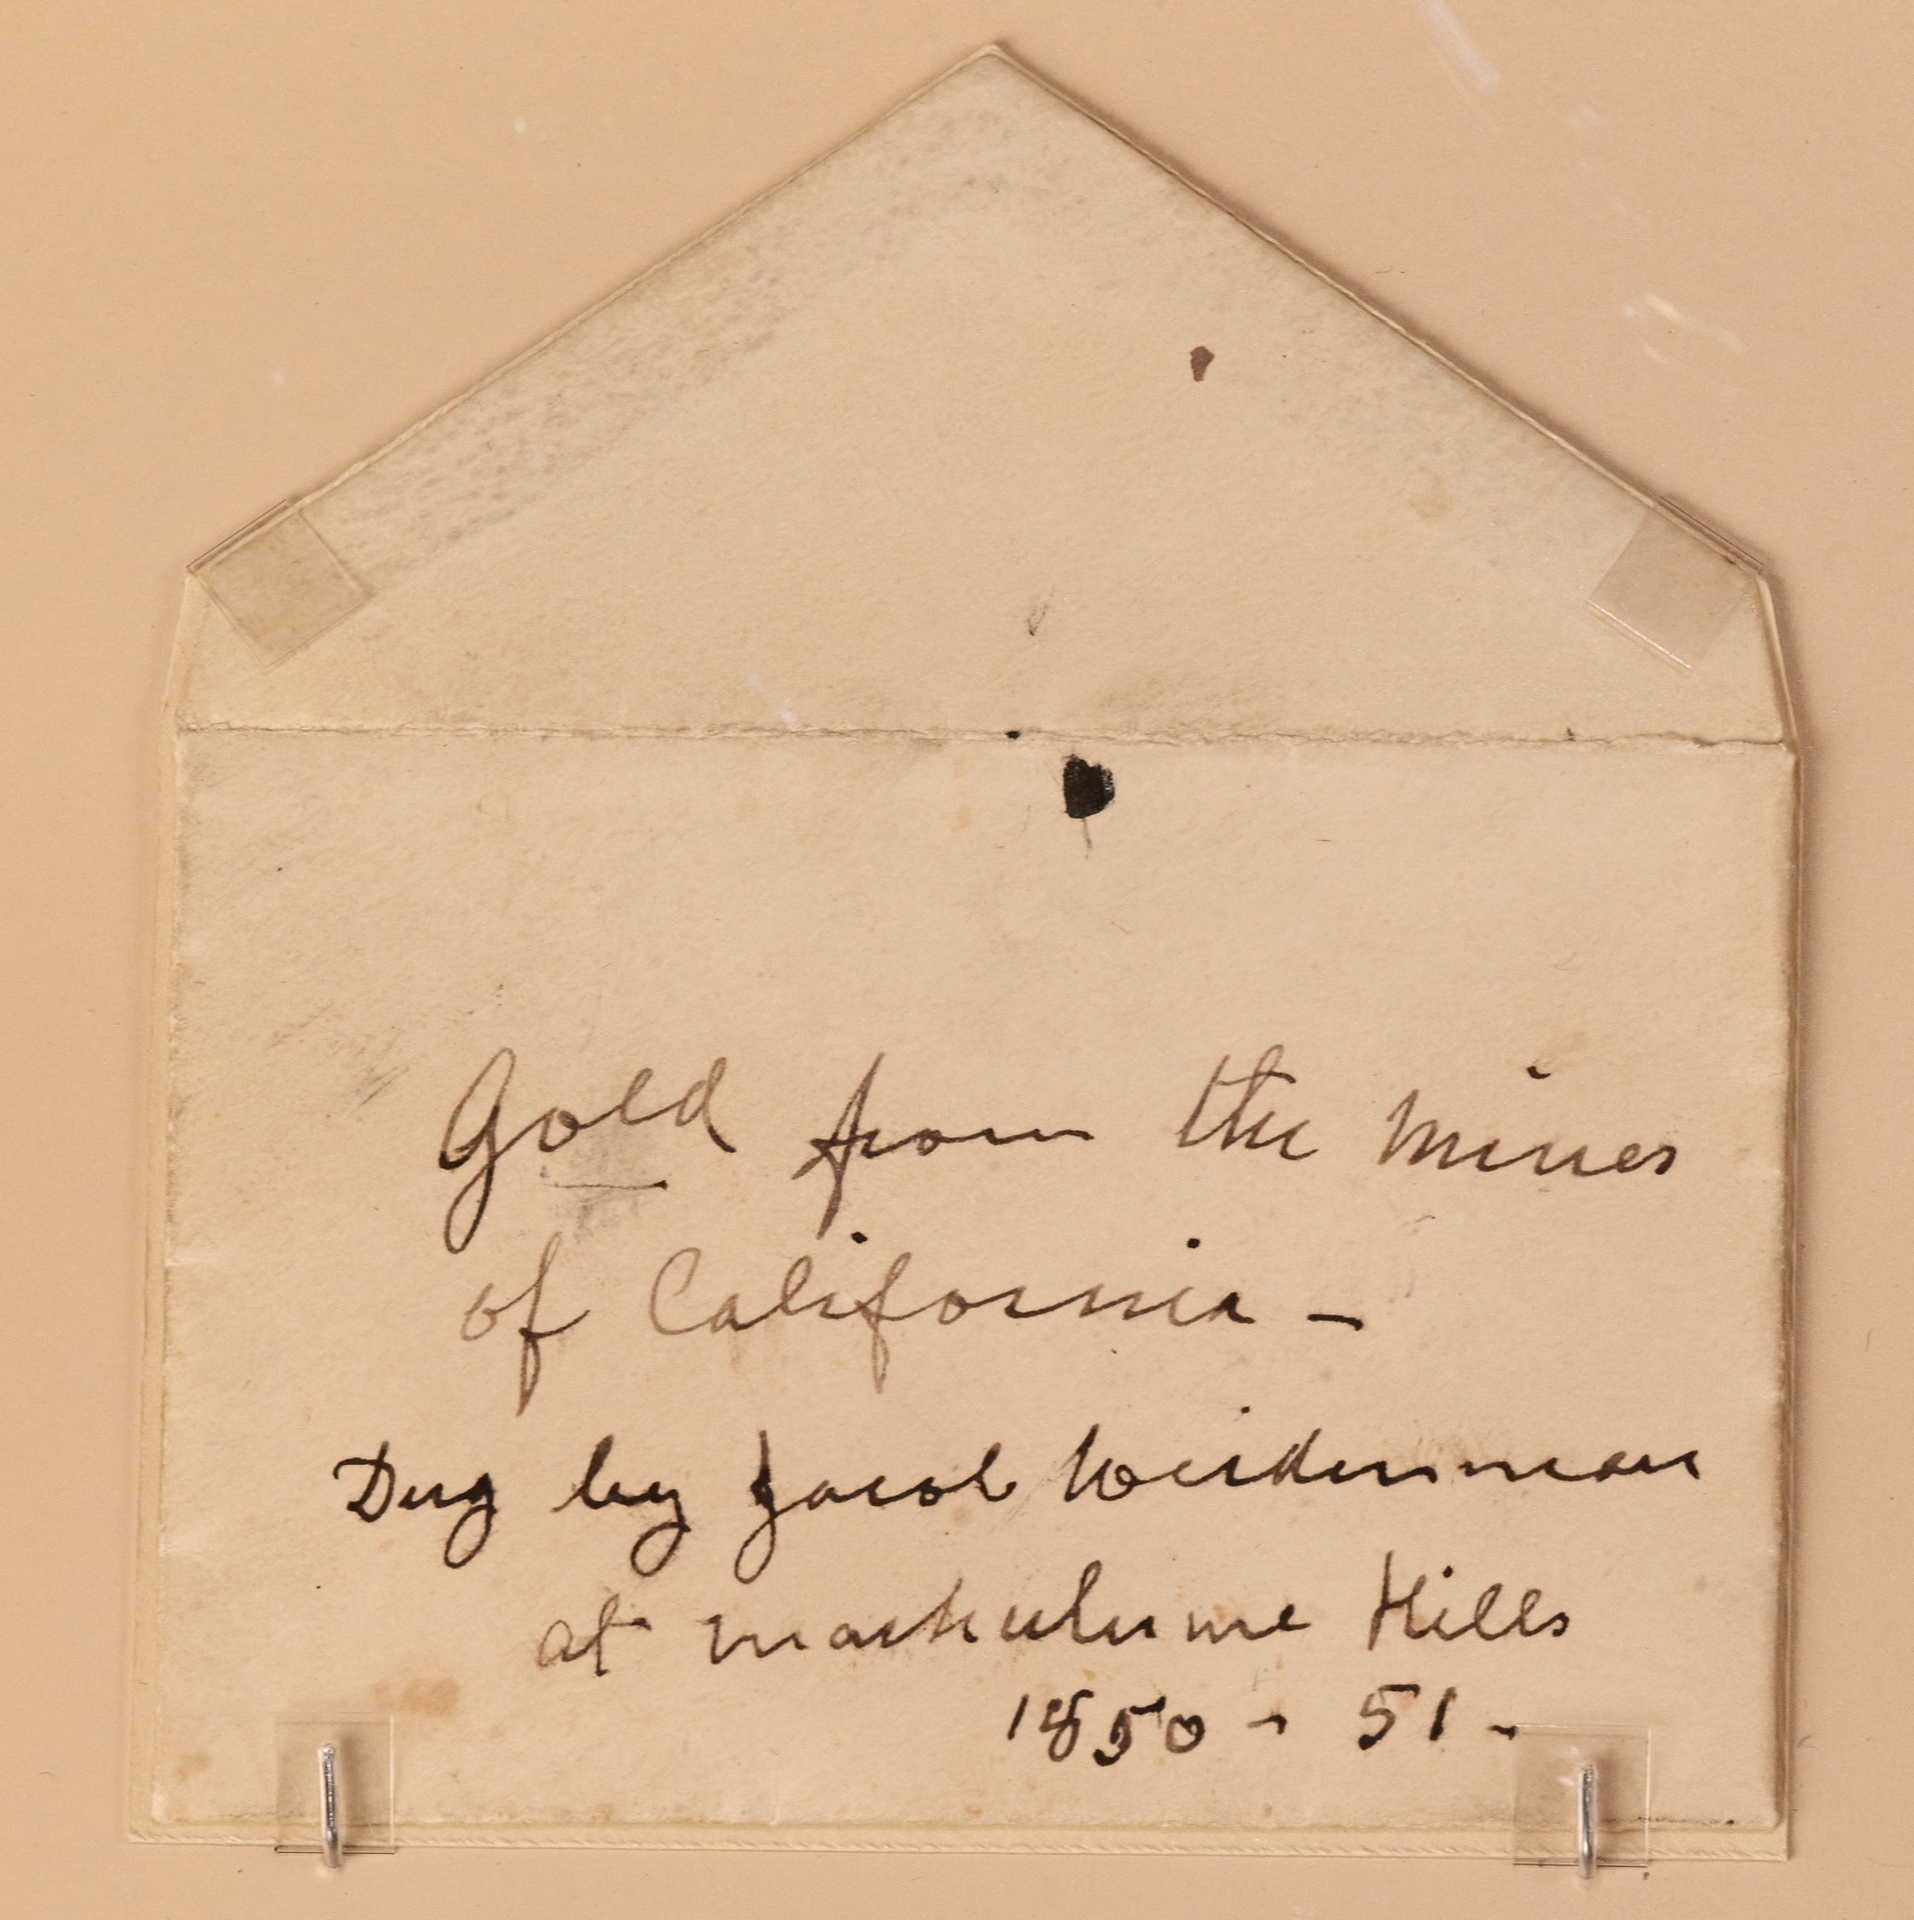 Gold from the Mines
of California -
Dug by Jacob Weidenman
at Mackulume Hills
1850 - 51 -